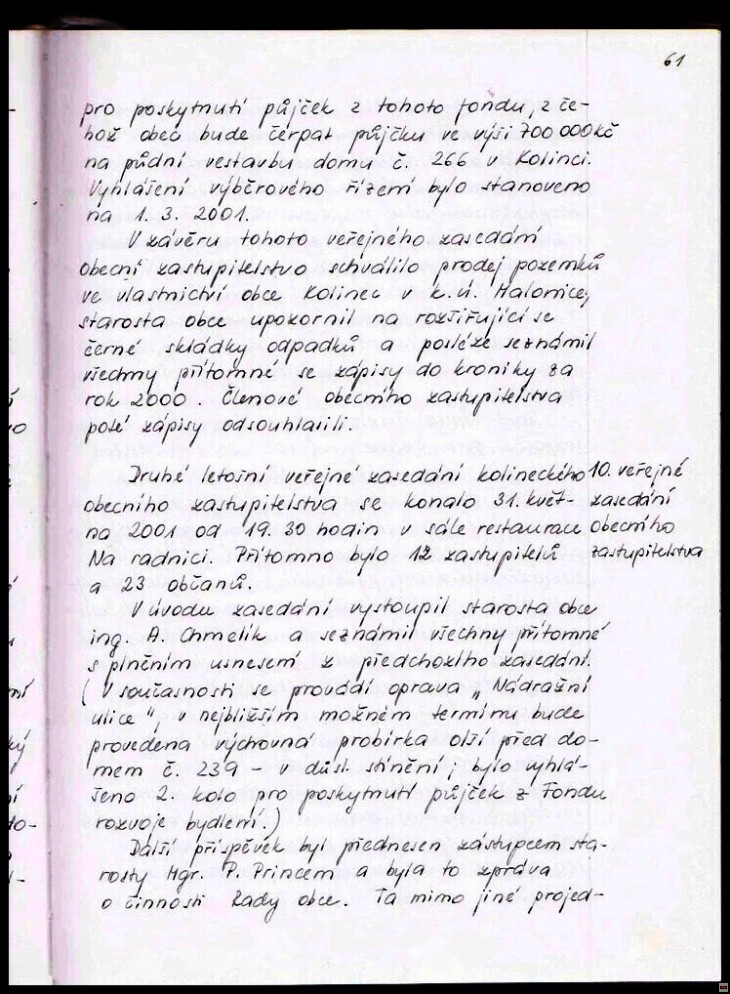 61
pro poskytnutí půjček z tohoto fondu, z če-
hož obec bude čerpat půjčku ve výši 700 000 kč
na půdní vestavbu domu č. 266 v Kolinci.
Vyhlášení výběrového řízení bylo stanoveno
na 1. 3. 2001.
V závěru tohoto veřejného zasedání
obecní zastupitelstvo schválilo prodej pozemků
ve vlastnictví obce Kolinec v k.ú. Malonice,
starosta obce upozornil na rozšiřující se
černé skládky odpadků a posléze seznámil
všechny přítomné se zápisy do kroniky za
rok 2000. Členové obecního zastupitelstva
poté zápisy odsouhlasili.
Druhé letošní veřejné zasedání kolineckého
obecního zastupitelstva se konalo 31. květ-
na 2001 od 19.30 hodin v sále restaurace
Na radnici. Přítomno bylo 12 zastupitelů
a 23 občanů.
10. veřejné
zasedání
obecního
zastupitelstva
V úvodu zasedání vystoupil starosta obce
ing. A. Chmelík a seznámil všechny přítomné
s plněním usnesení z předchozího zasedání.
(V současnosti se provádí oprava „Nádražní
ulice", v nejbližším možném termínu bude
provedena výchovná probírka olší před do-
mem č. 239 - v důsl. stínění; bylo vyhlá-
šeno 2. kolo pro poskytnutí půjček z Fondu
rozvoje bydlení.)
Další příspěvek byl přednesen zástupcem sta-
rosty Mgr. P. Princem a byla to zpráva
o činnosti Rady obce. Ta mimo jiné projed-